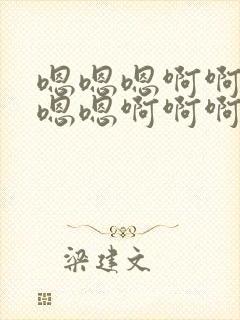 嗯嗯嗯啊啊
嗯嗯啊啊啊
梁建文